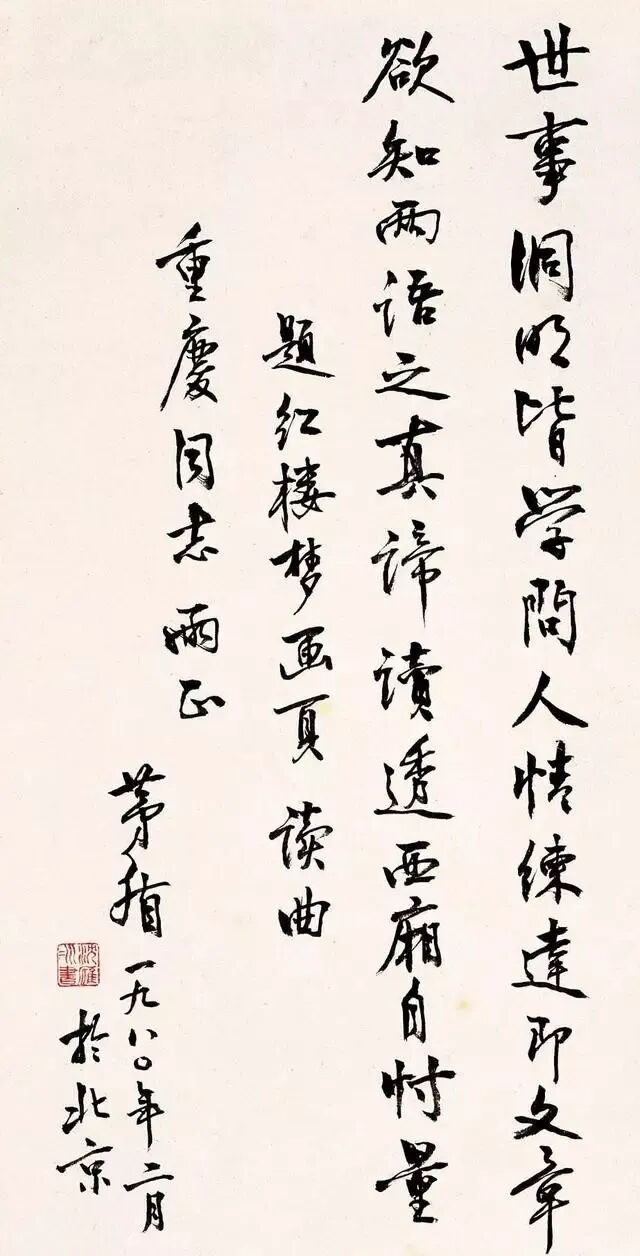 世事洞明皆学問人情練達即文章
欲知兩語之真諦讀透西廂自忖量
题红楼梦画頁 读曲
重慶同志 正
茅盾 一九八〇年二月
於北京
沈雁冰書